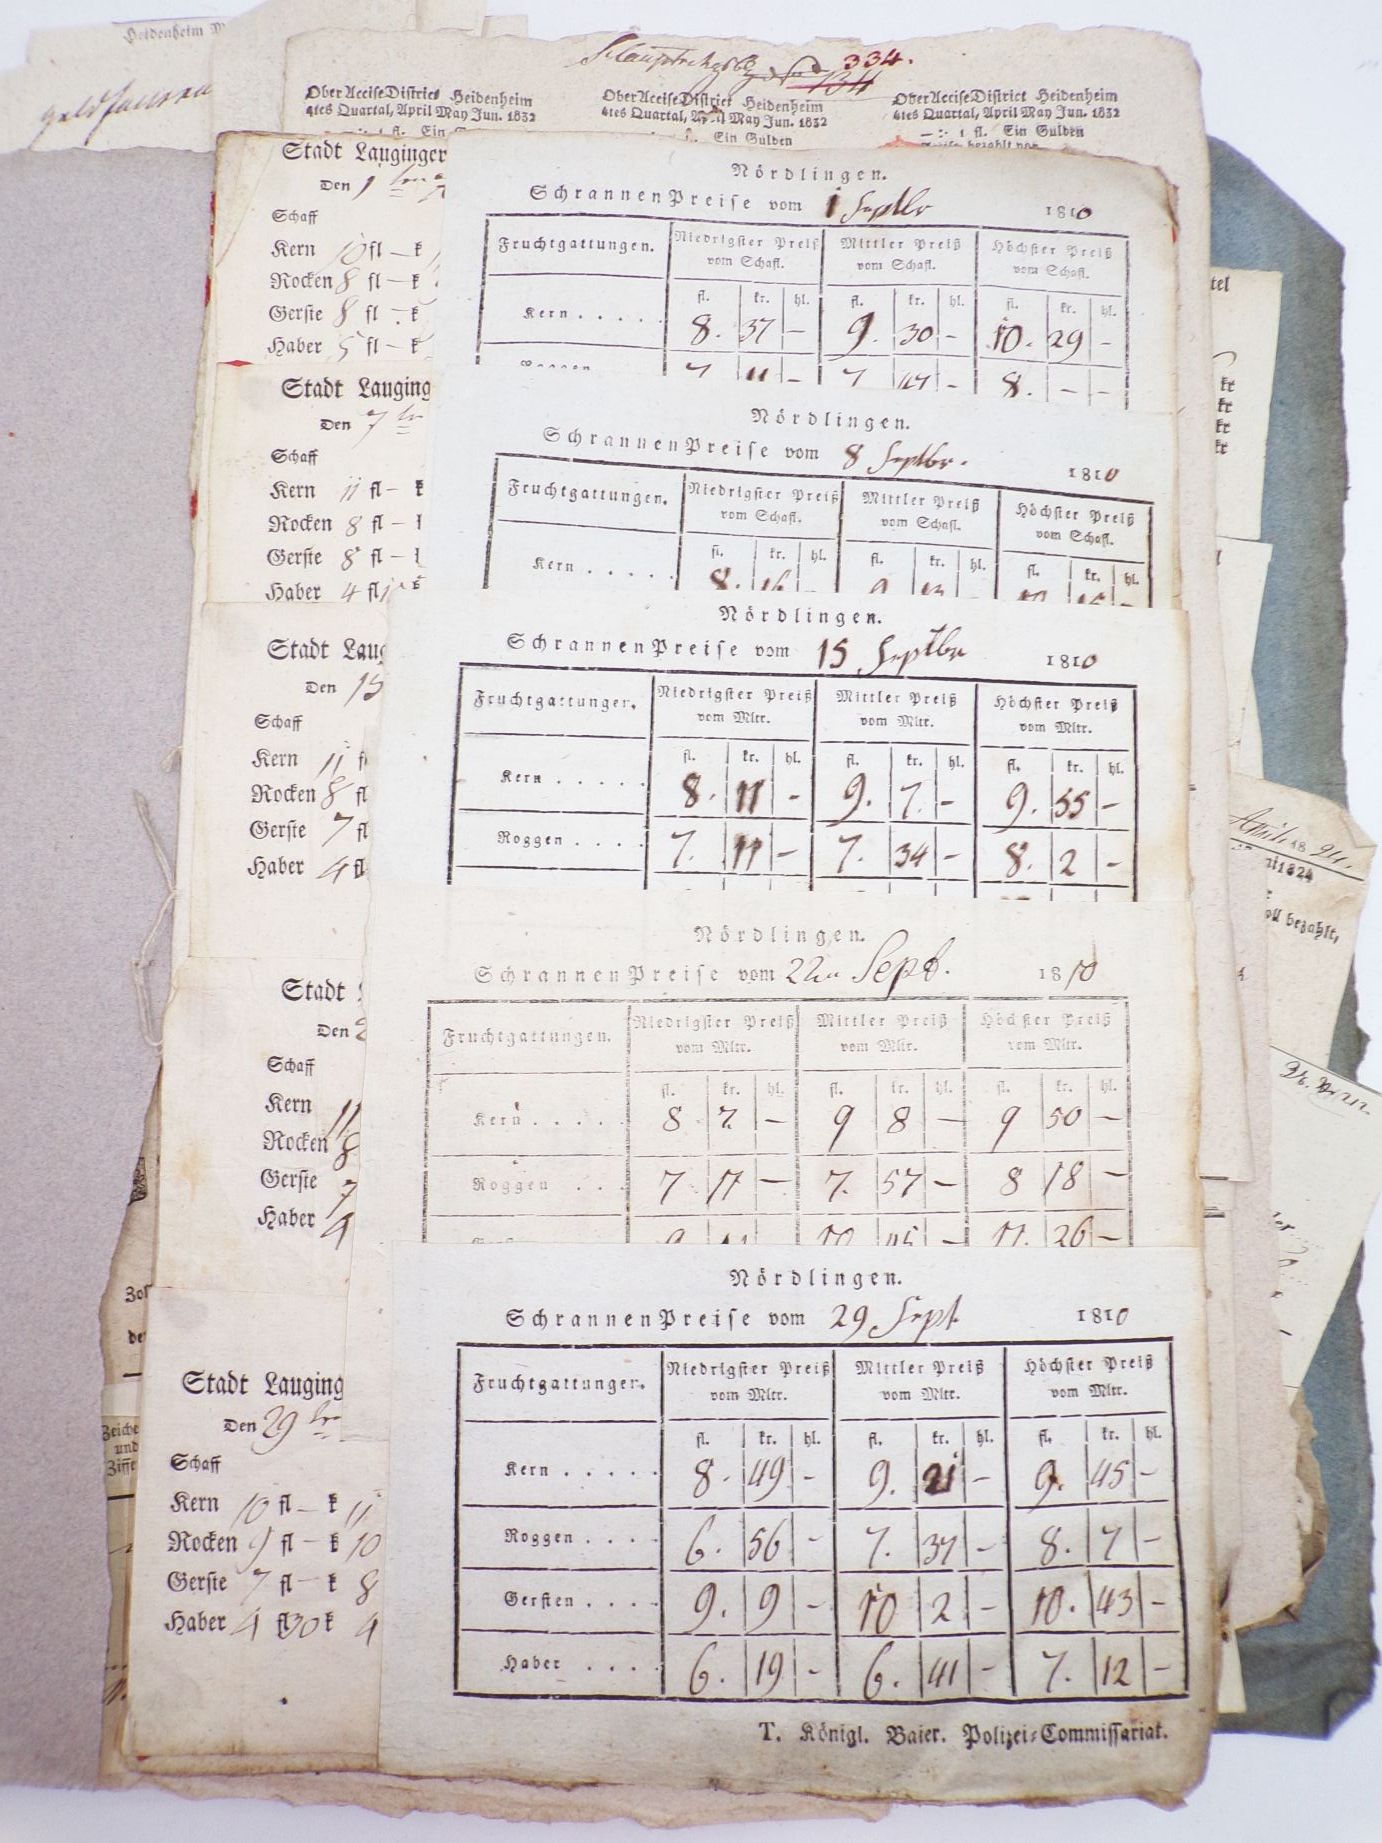 Heidenheim
334.
134
OberAcciseDistrict Heidenheim
4tes Quartal, April May Jun. 1832
Ein
OberAcciseDistrict Heidenheim
4tes Quartal, April May Jun. 1832
Ein Gulden
OberAcciseDistrict Heidenheim
4tes Quartal, April May Jun. 1832
— : 1 fl. Ein Gulden
bezahlt von
Stadt Lauginger
Den 1
Schaff
Kern 10 fl — k
Rocken 8 fl — k
Gerste 8 fl — k
Haber 5 fl — k
Stadt Lauging
Den 7
Schaff
Kern 11 fl — k
Rocken 8 fl —
Gerste 8 fl —
Haber 4 fl
Stadt Laug
Den 15
Schaff
Kern 11 f
Rocken 8 fl
Gerste 7 fl
Haber 4 fl
Stadt
Den 2
Schaff
Kern 11
Rocken 8
Gerste 7
Haber 4
Stadt Lauging
Den 29
Schaff
Kern 10 fl — k 11
Rocken 9 fl — k 10
Gerste 7 fl — k 8
Haber 4 fl 30 k 4
Nördlingen.
SchrannenPreise vom 1 Septbr 1810
Fruchtgattungen. Niedrigster Preiß vom Schafl. Mittler Preiß vom Schafl. Höchster Preiß vom Schafl.
fl. kr. hl. fl. kr. hl. fl. kr. hl.
Kern . . . . . 8. 37 — 9. 30 — 10. 29 —
7 11 — 7 47 — 8. — —
Nördlingen.
SchrannenPreise vom 8 Septbr. 1810
Fruchtgattungen. Niedrigster Preiß vom Schafl. Mittler Preiß vom Schafl. Höchster Preiß vom Schafl.
fl. kr. hl. fl. kr. hl. fl. kr. hl.
Kern . . . . . 8. 16 9 13 10 15 —
Nördlingen.
SchrannenPreise vom 15 Septbr 1810
Fruchtgattungen. Niedrigster Preiß vom Mltr. Mittler Preiß vom Mltr. Höchster Preiß vom Mltr.
fl. kr. hl. fl. kr. hl. fl. kr. hl.
Kern . . . . . 8. 11 — 9. 7. — 9. 55 —
Roggen . . . . 7. 11 — 7. 34 — 8. 2 —
Nördlingen.
SchrannenPreise vom 22n Sept. 1810
Fruchtgattungen. Niedrigster Preiß vom Mltr. Mittler Preiß vom Mltr. Höchster Preiß vom Mltr.
fl. kr. hl. fl. kr. hl. fl. kr. hl.
Kern . . . . . 8 7. — 9 8 — 9 50 —
Roggen . . . 7 17 — 7. 57 — 8 18 —
10 45 — 11. 26 —
Nördlingen.
SchrannenPreise vom 29 Sept. 1810
Fruchtgattungen. Niedrigster Preiß vom Mltr. Mittler Preiß vom Mltr. Höchster Preiß vom Mltr.
fl. kr. hl. fl. kr. hl. fl. kr. hl.
Kern . . . . . 8. 49 — 9. 21 — 9. 45 —
Roggen . . . . 6. 56 — 7. 37 — 8. 7 —
Gersten . . . . 9. 9 — 10 2 — 10. 43 —
Haber . . . . 6. 19 — 6. 41 — 7. 12 —
T. Königl. Baier. Polizei-Commissariat.
Zoll
de
Zeiche
und
Ziffe
tel
kr
kr
kr
kr
April 18 24.
1824
bezahlt,